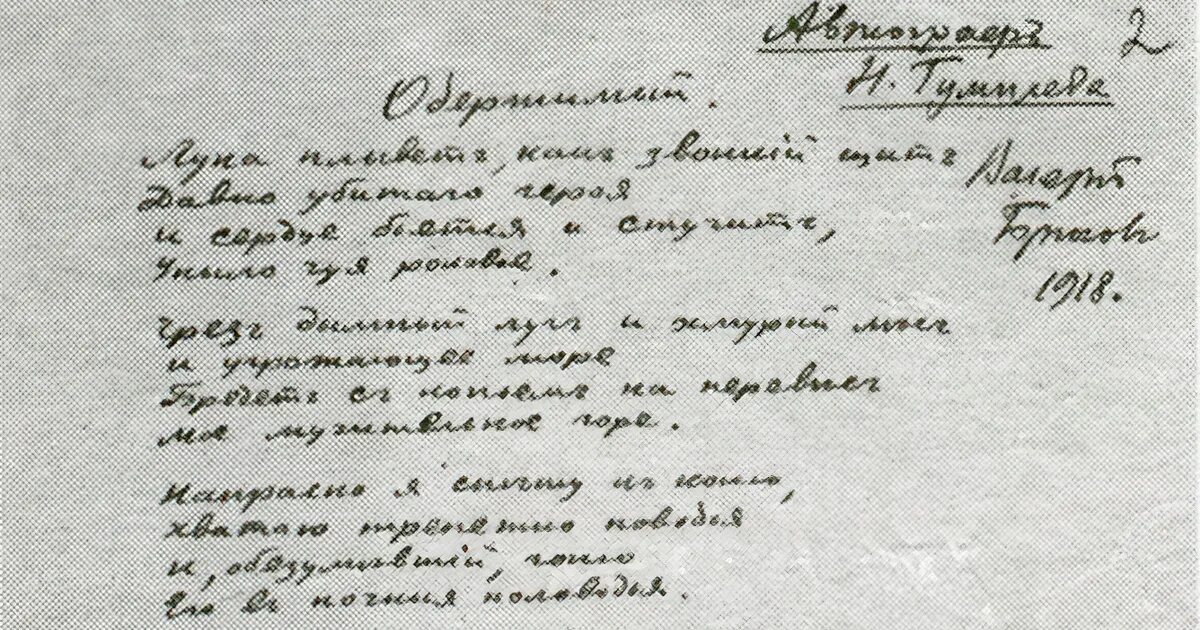 Автографъ 2
Н. Гумилева
Одержимый.
Луна плыветъ, какъ звонкій щитъ
Давно убитаго героя
и сердце бьется и стучитъ,
Уныло чуя роковое.
Чрезъ дымный лугъ и хмурый лѣсъ
и угрожающее море
Бредетъ съ копьемъ на перевѣсъ
мое мучительное горе.
Напрасно я спѣшу къ коню,
хватаю трепетно поводья
и, обезумѣвшій, гоню
Его въ ночныя половодья.
1918.